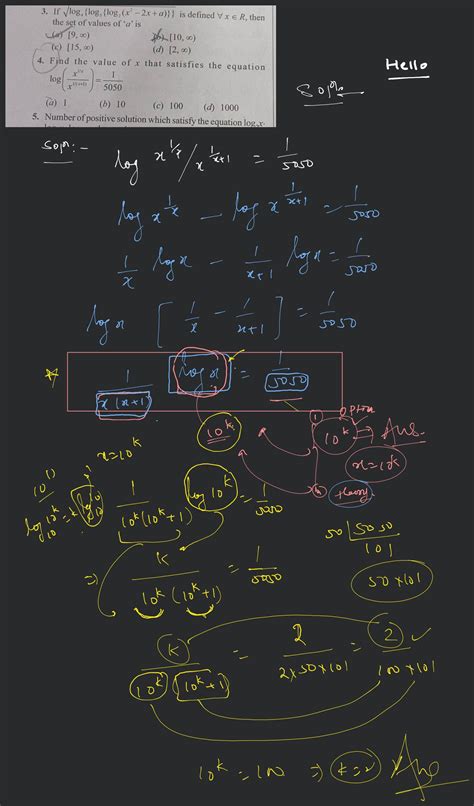 3. If √log₄{log₃{log₂(x² − 2x + a)}} is defined ∀ x ∈ R, then
the set of values of 'a' is
(a) [9, ∞) (b) [10, ∞)
(c) [15, ∞) (d) [2, ∞)
4. Find the value of x that satisfies the equation
log(x^(1/x) / x^(1/(x+1))) = 1/5050
(a) 1 (b) 10 (c) 100 (d) 1000
5. Number of positive solution which satisfy the equation log₂x·
Hello
Solⁿ
Solⁿ:-
log x^(1/x) / x^(1/(x+1)) = 1/5050
log x^(1/x) − log x^(1/(x+1)) = 1/5050
1/x log x − 1/(x+1) log x = 1/5050
log x [1/x − 1/(x+1)] = 1/5050
1/(x(x+1)) log x = 1/5050
10^k
① option
10^k → Ans.
x = 10^k
theory
x = 10^k
log₁₀ 10^k = k log₁₀ 10
1/(10^k(10^k+1)) log 10^k = 1/5050
50 | 5050
101
⇒ k/(10^k(10^k+1)) = 1/5050
50×101
k/(10^k(10^k+1)) = 2/(2×50×101) = 2/(100×101)
10^k = 100 ⇒ k=2 Ans